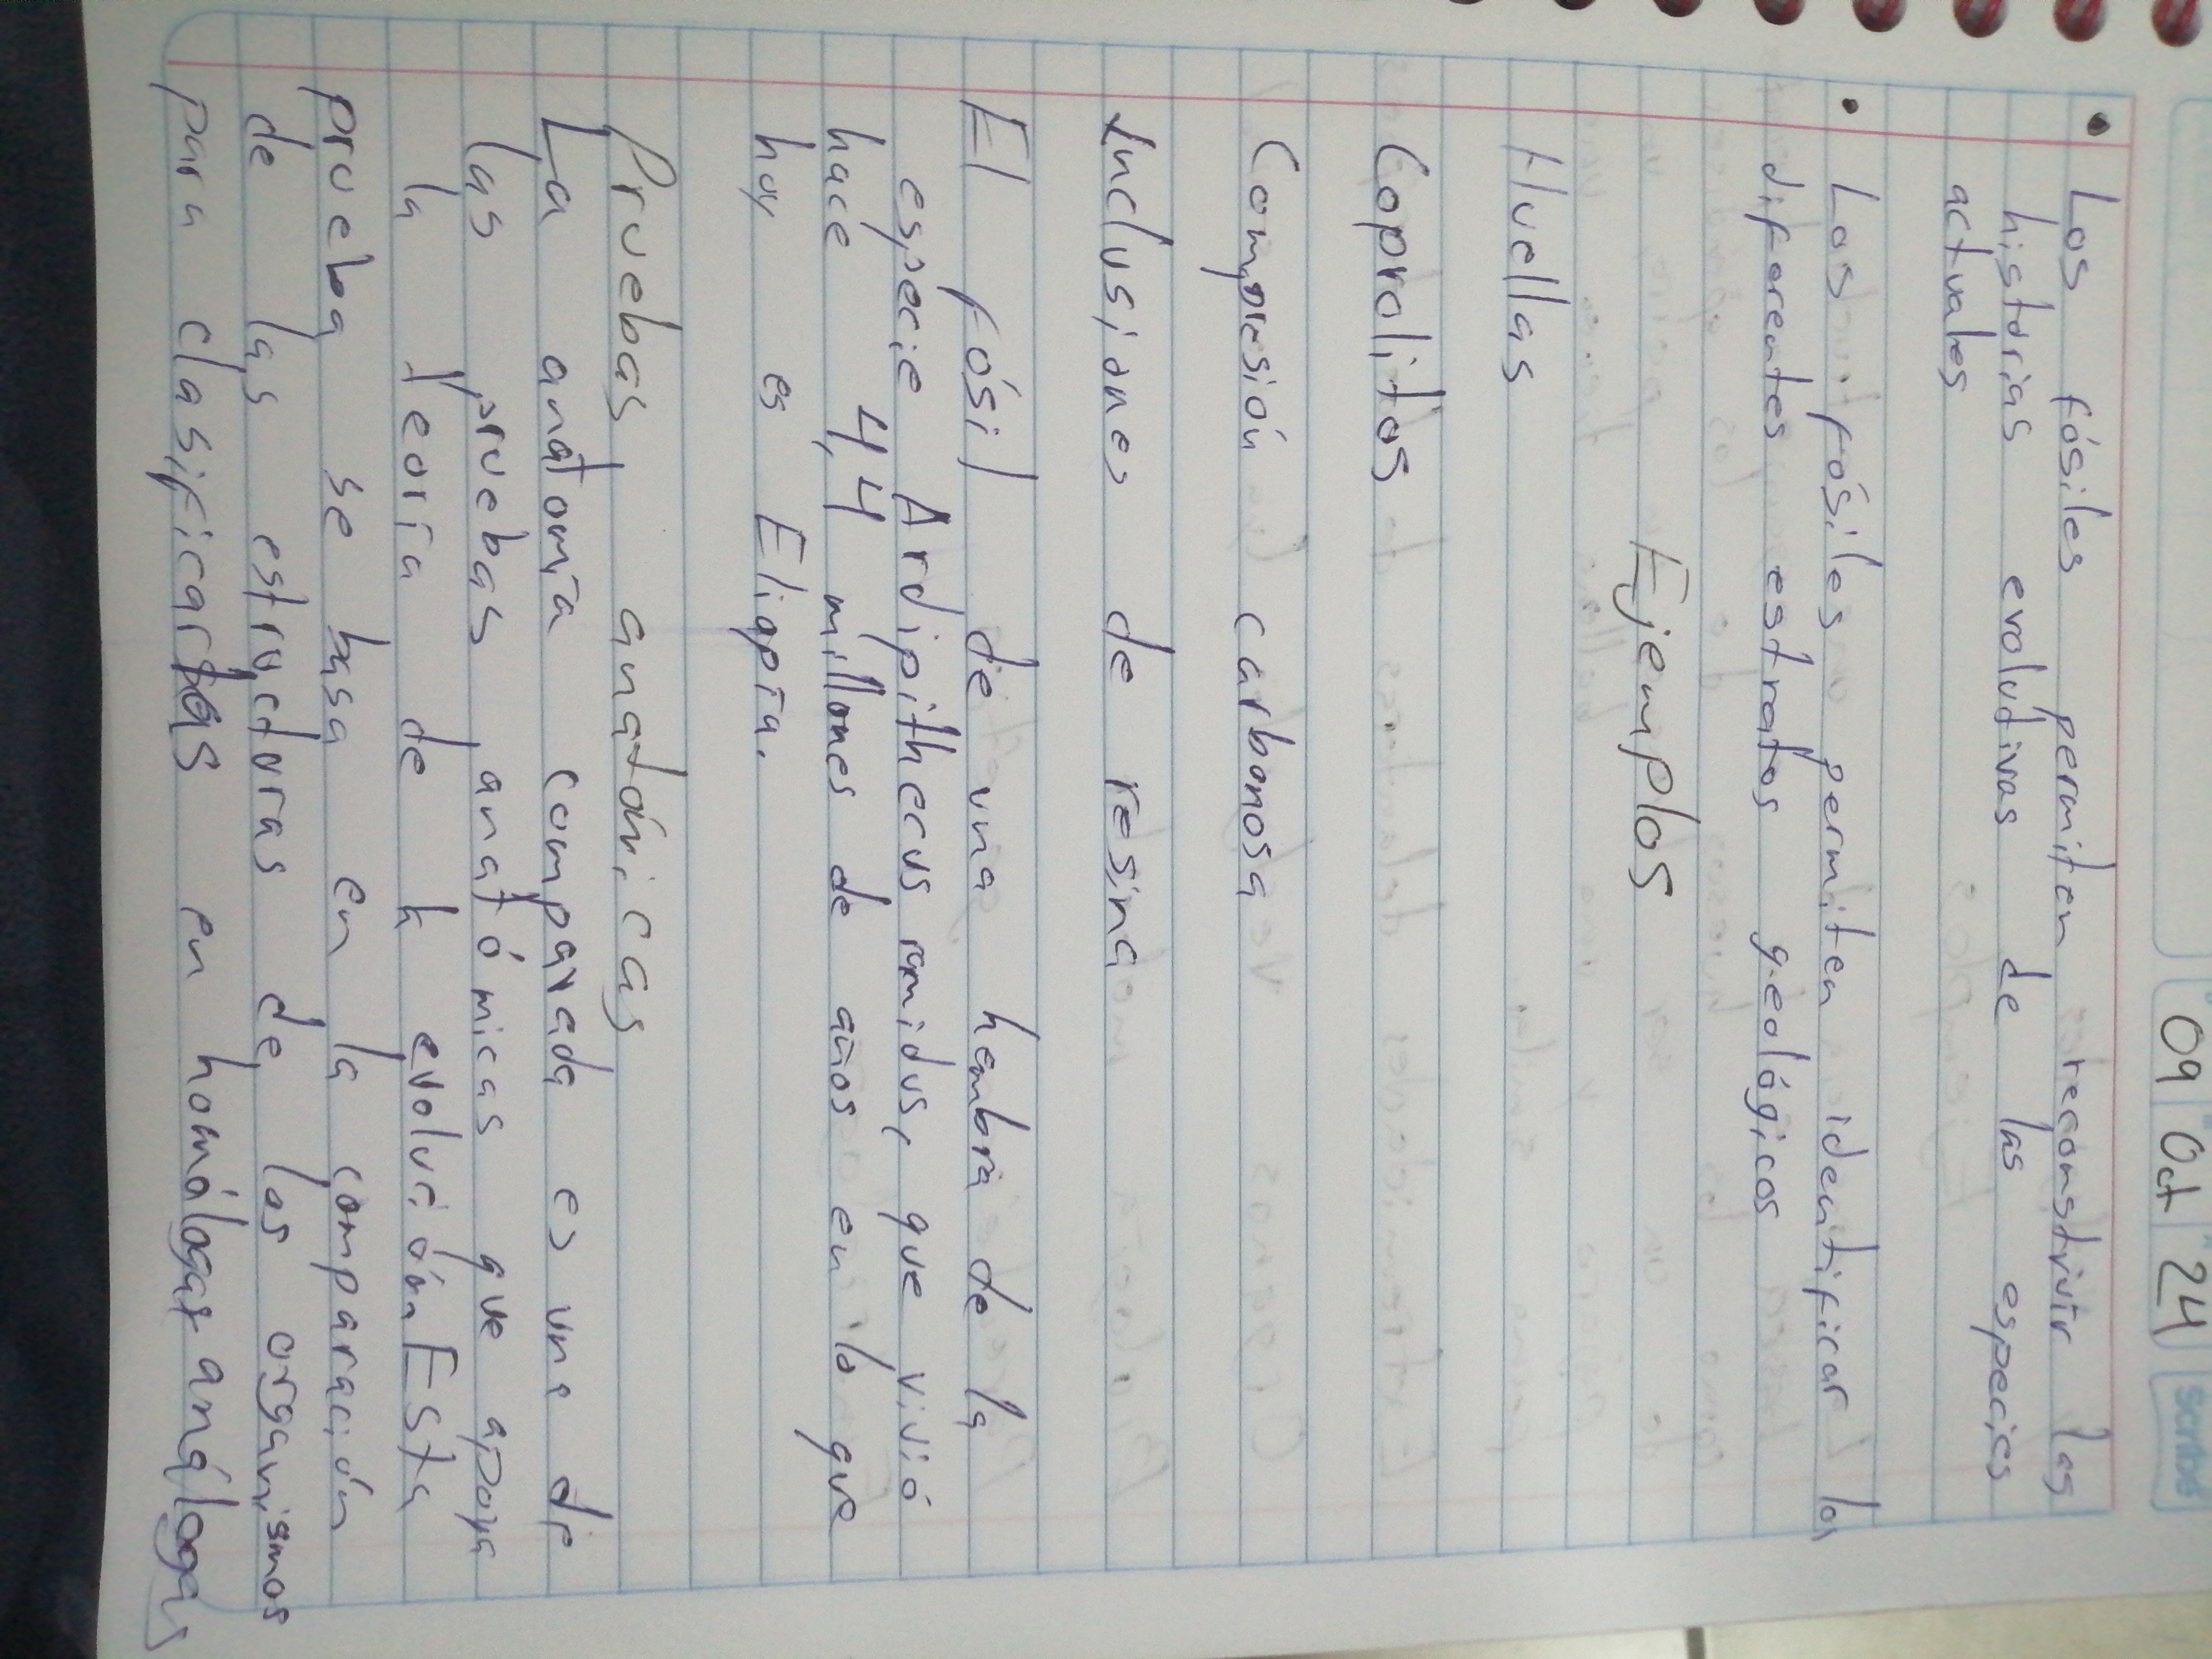 09 Oct 24
scribe
• Los fósiles permiten reconstruir las
historias evolutivas de las especies
actuales
• Los fósiles permiten identificar los
diferentes estratos geológicos
Ejemplos
Huellas
Coprolitos
Compresión carbonosa
Inclusiones de resina
El fósil de una hembra de la
especie Ardipithecus ramidus, que vivió
hace 4,4 millones de años en lo que
hoy es Eliopía.
Pruebas anatómicas
La anatomía comparada es una de
las pruebas anatómicas que apoya
la teoría de la evolución Esta
prueba se basa en la comparación
de las estructuras de los organismos
para clasificarlas en homólogas análogas